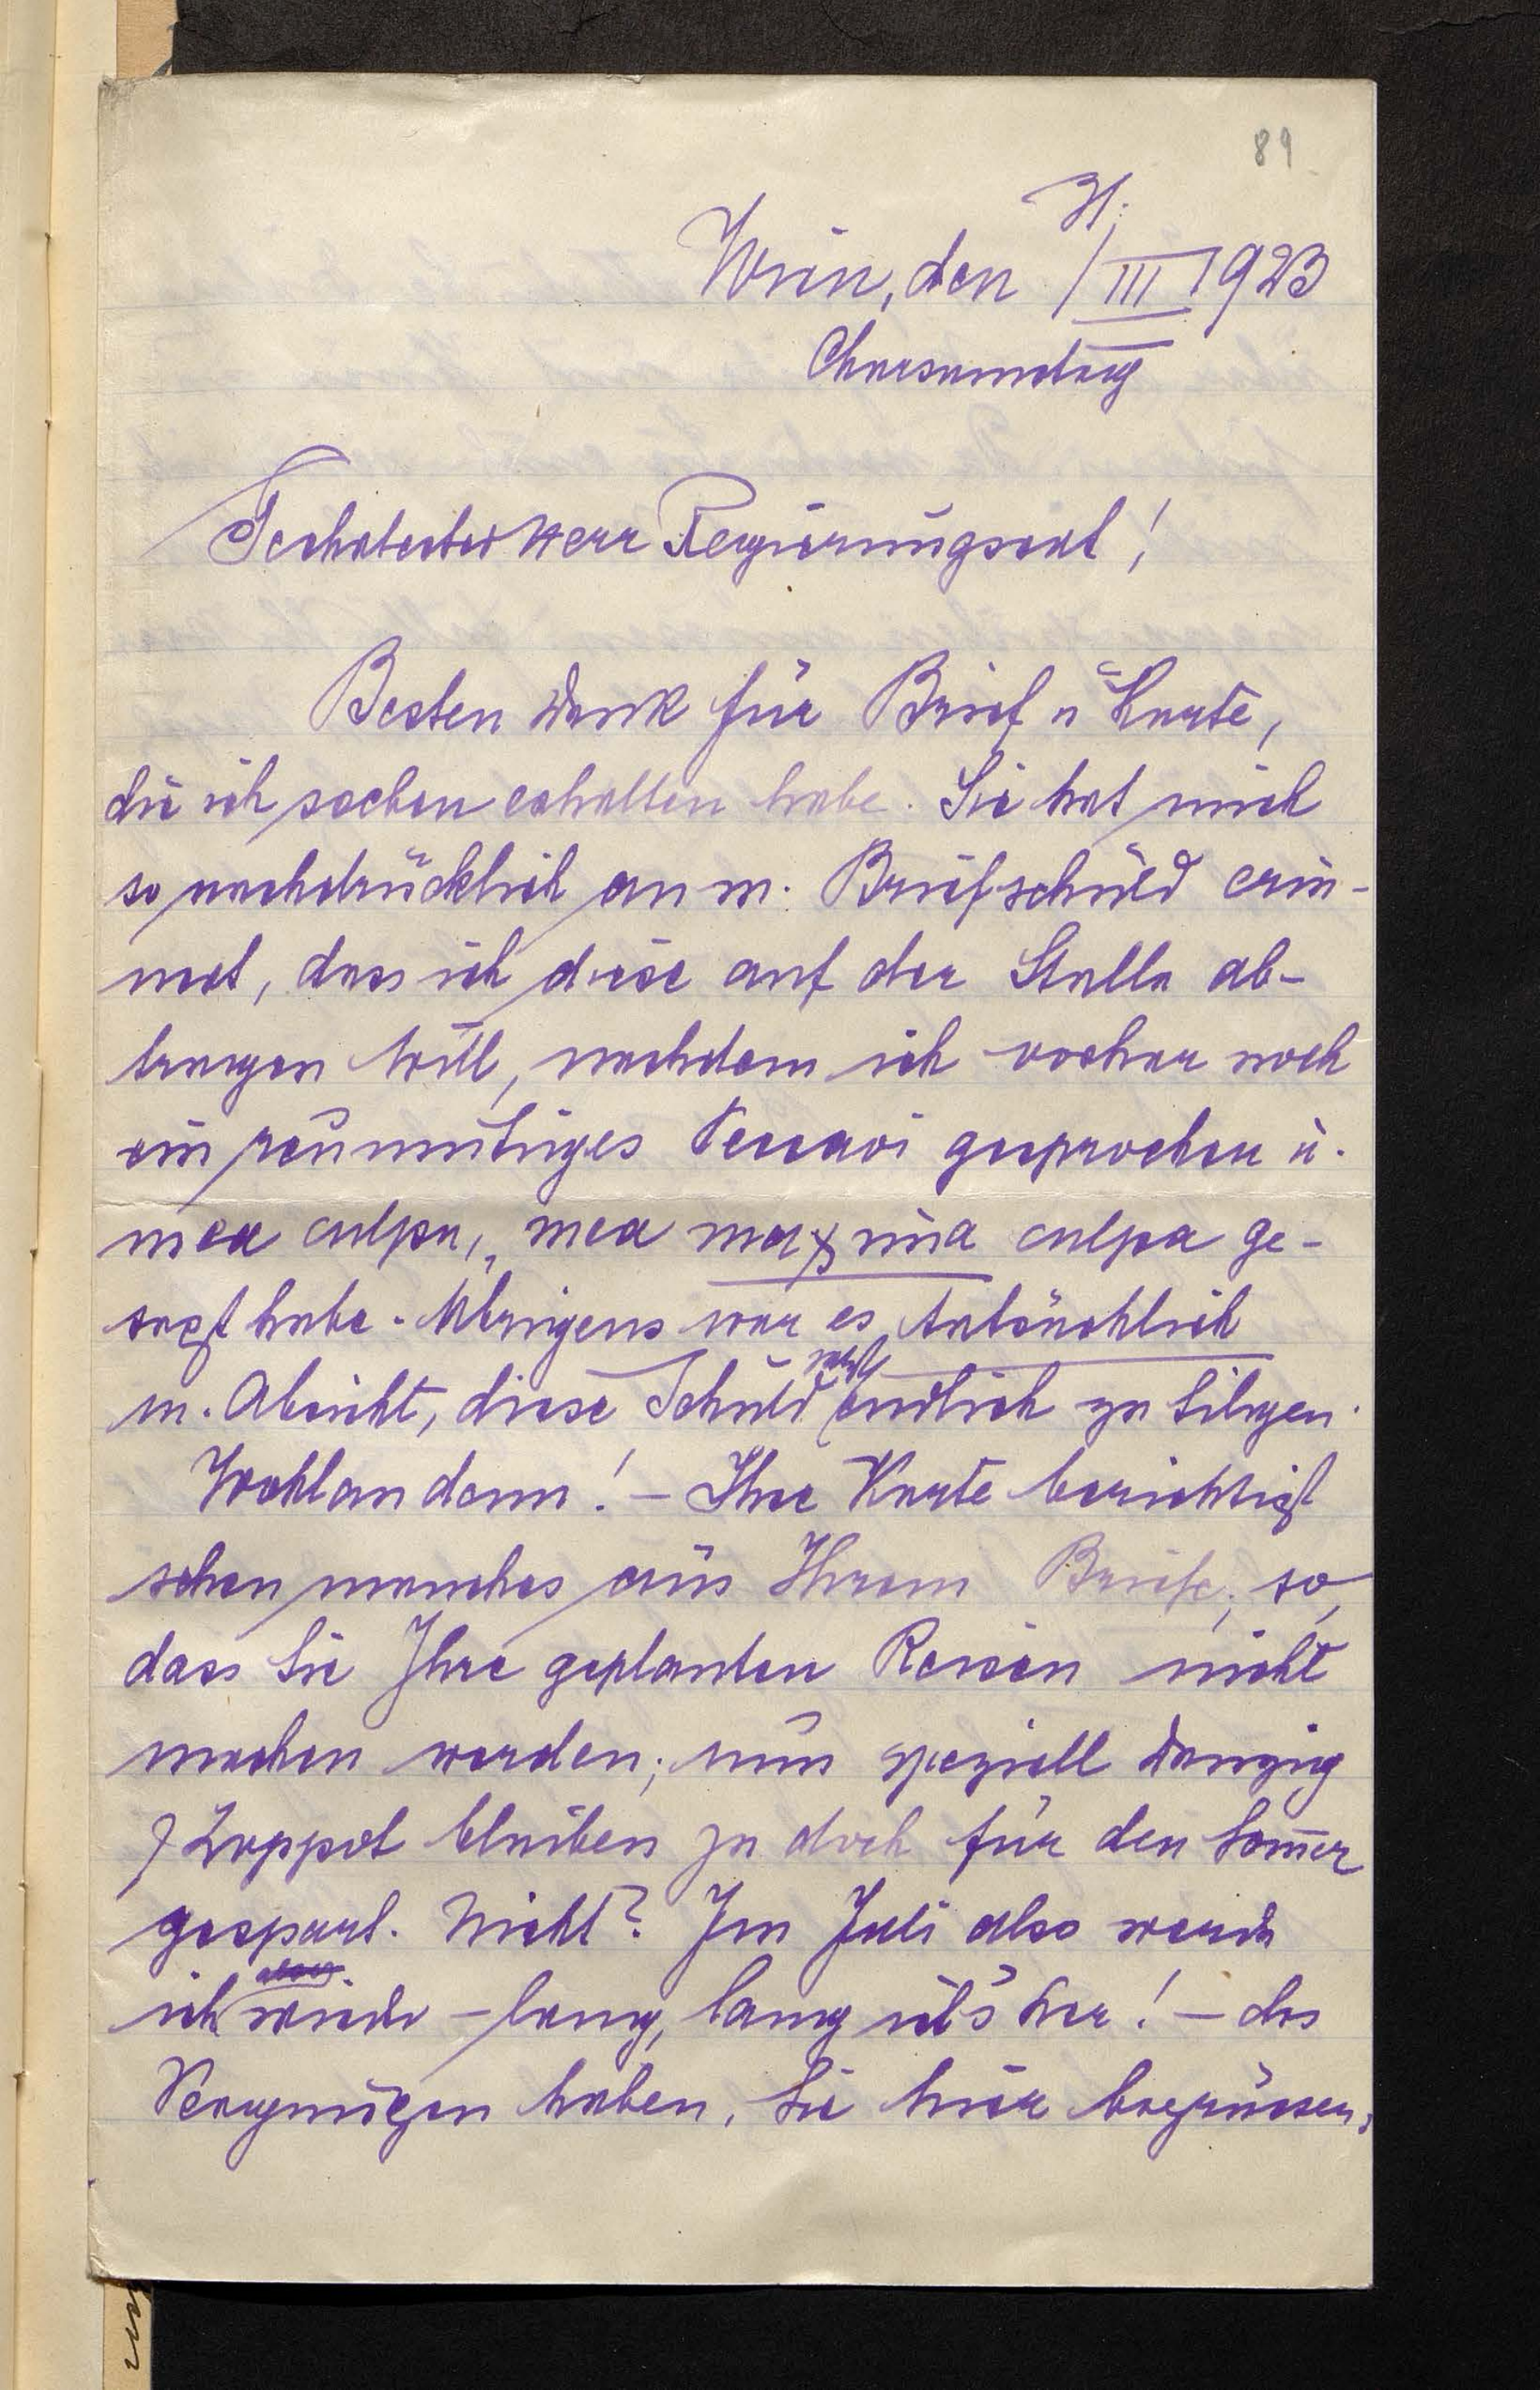 89
31.
Wien, den /III 1923
Charsamstag
Geehrtester Herr Regierungsrat!
Besten Dank für Brief u Karte,
die ich soeben erhalten habe. Sie hat mich
so nachdrücklich an m. Briefschuld erin-
nert, dass ich diese auf der Stelle ab-
tragen will, nachdem ich vorher noch
ein reumütiges Peccavi gesprochen u.
mea culpa, mea maxima culpa ge-
sagt habe. Übrigens war es tatsächlich
m. Absicht, diese Schuld endlich zu tilgen.
Wohlan denn! – Ihre Karte berichtigt
schon manches aus Ihrem Briefe; so,
dass Sie Ihre geplanten Reisen nicht
machen werden; nun speziell Danzig
Zoppot bleiben ja doch für den Som̅er
gespart. Nicht? Im Juli also werde
ich wieder – lang, lang ist's her! – das
Vergnügen haben, Sie hier begrüssen